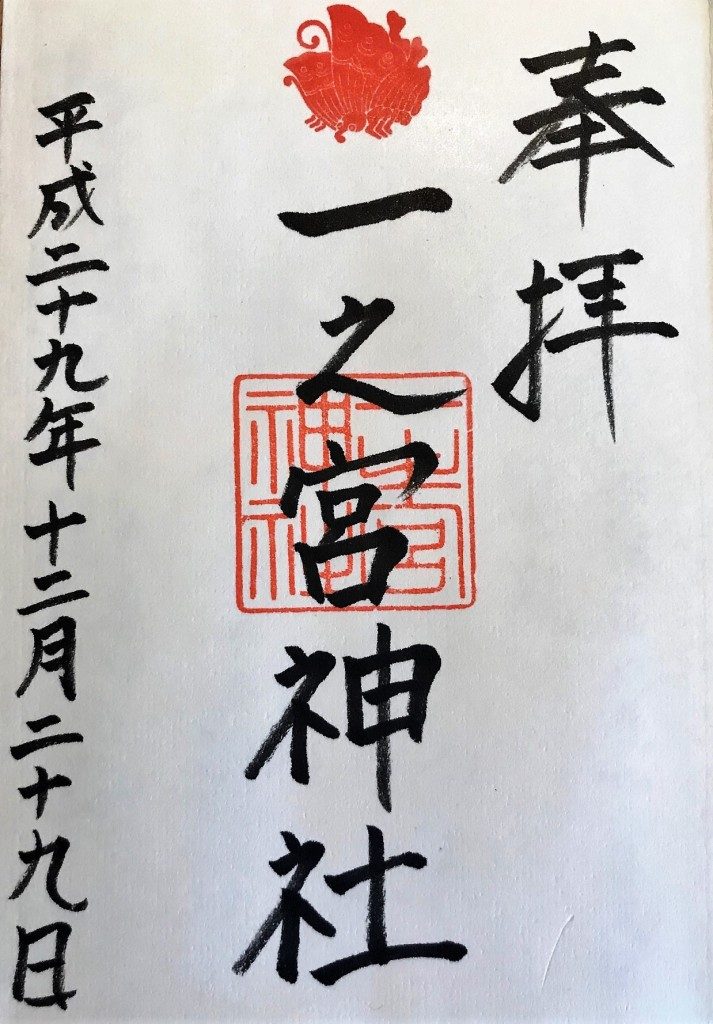 奉拝
一之宮神社
平成二十九年十二月二十九日